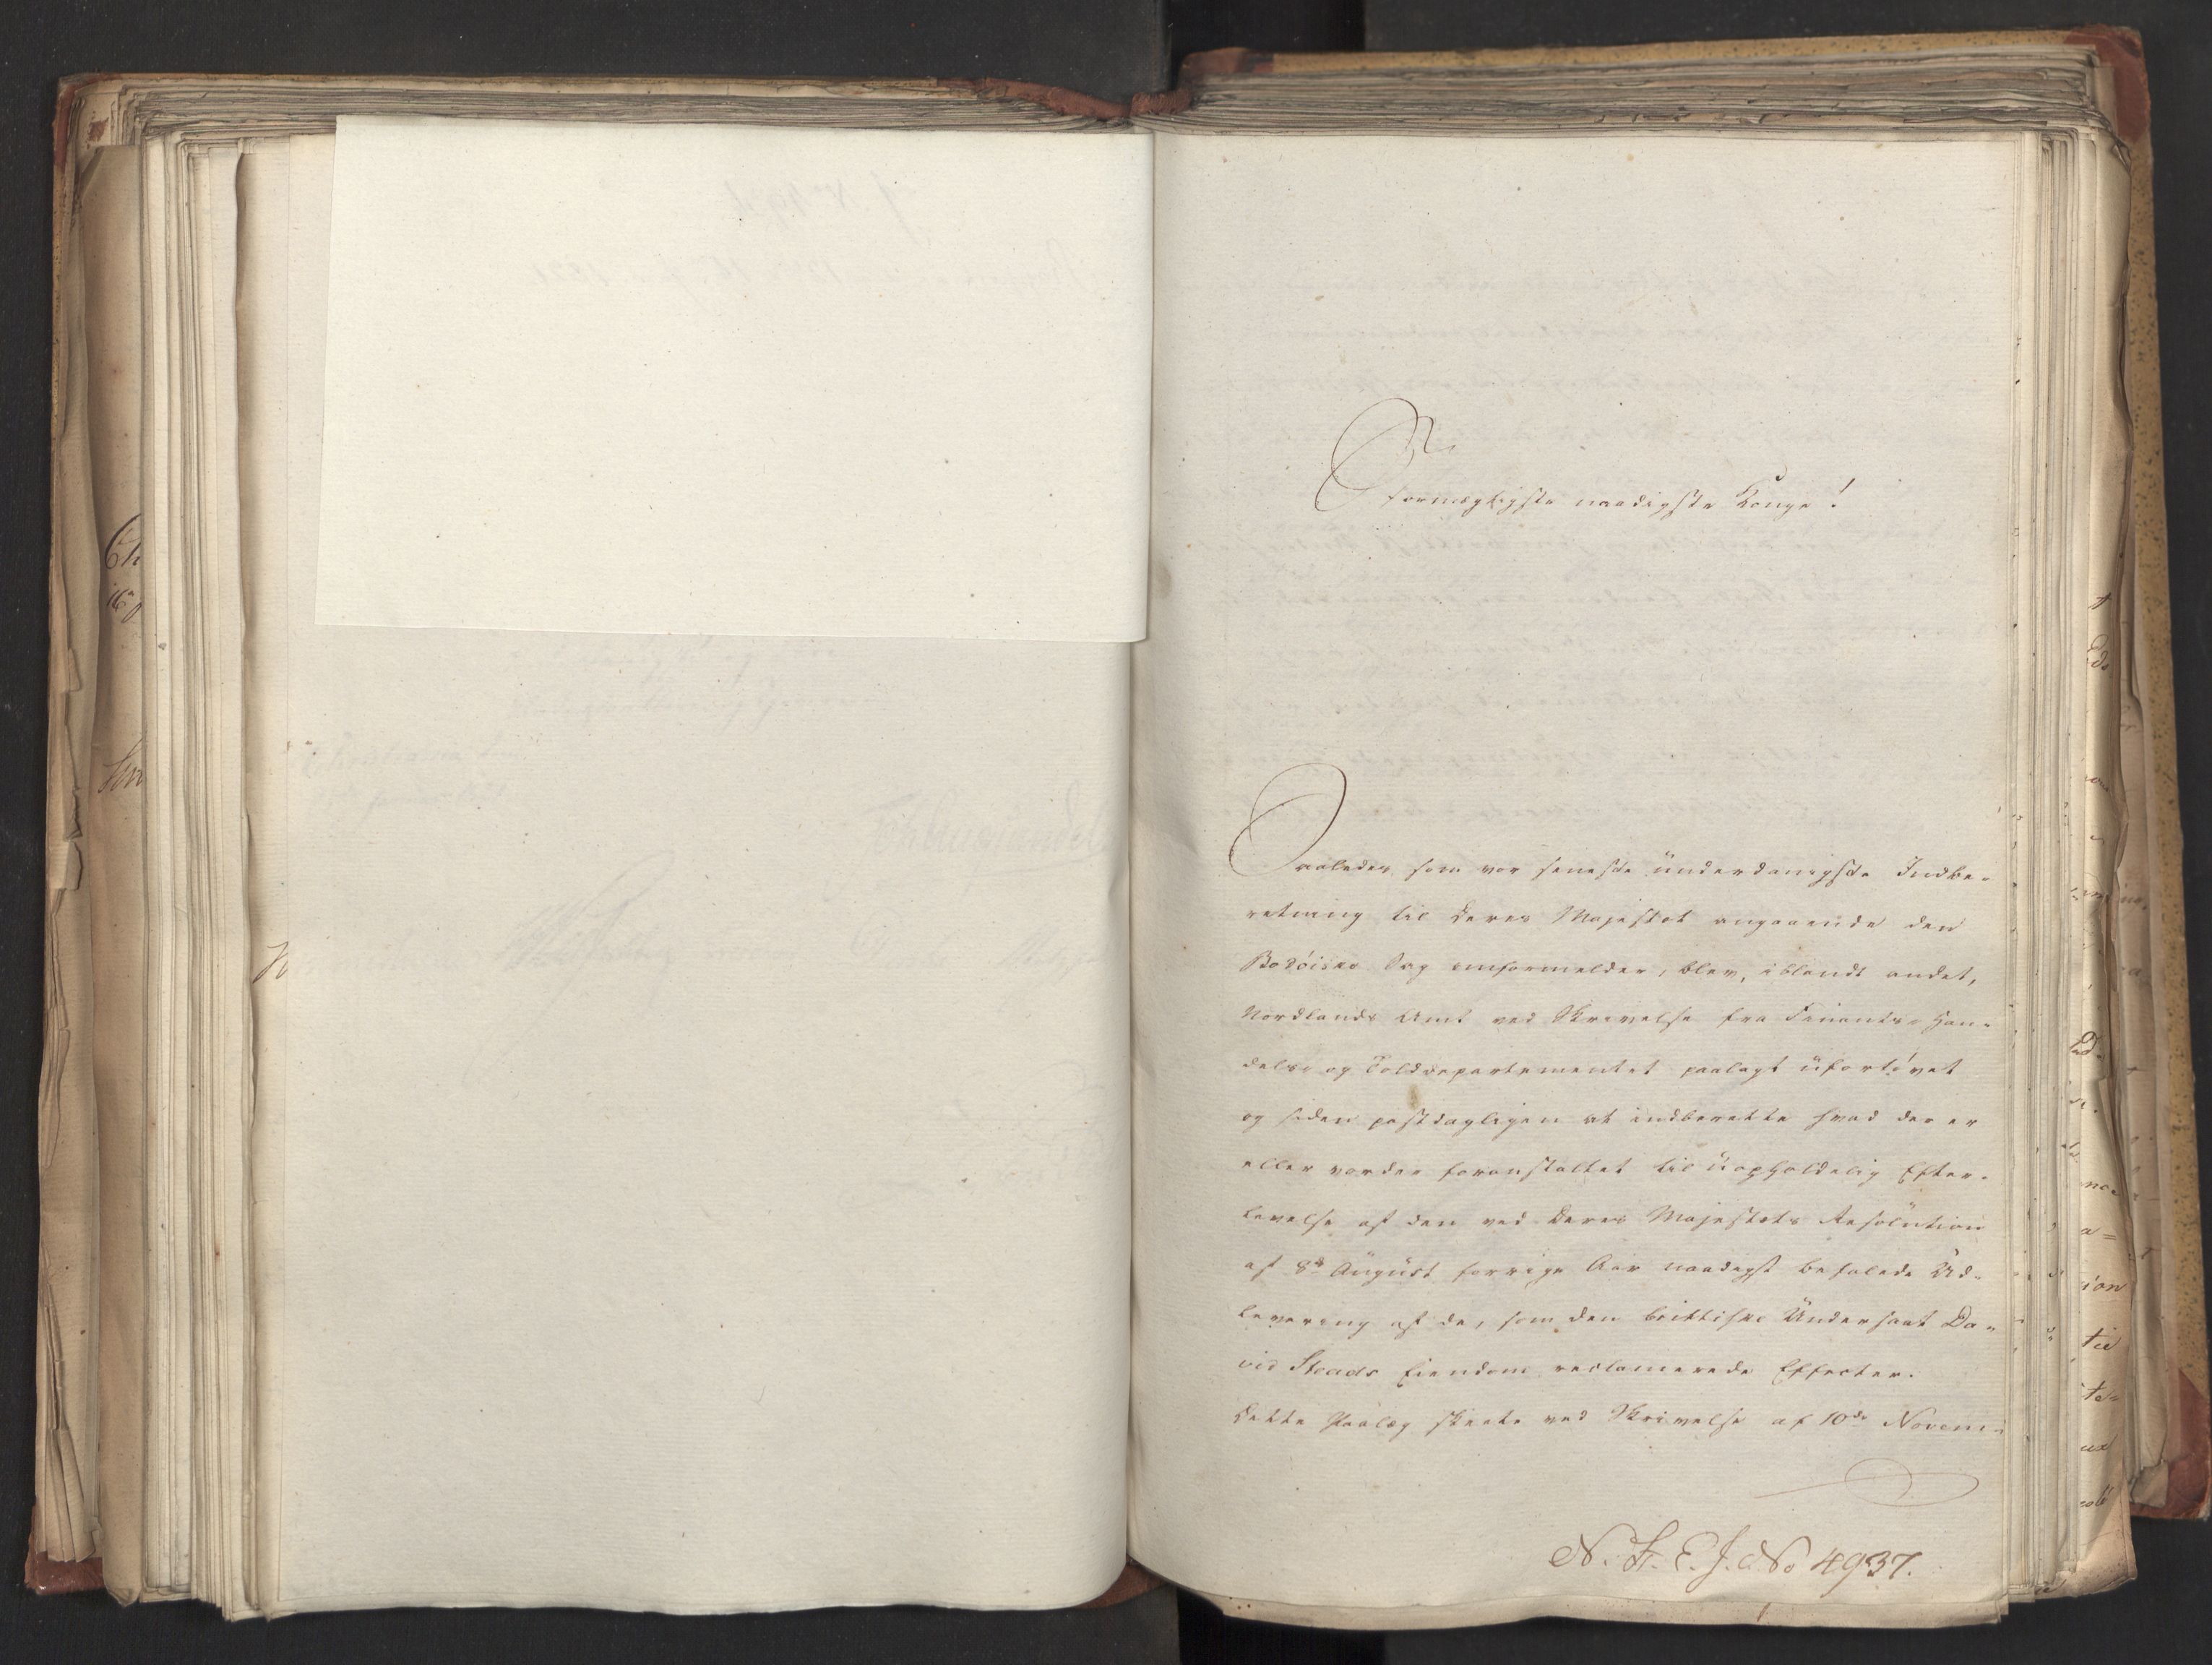 Stormægtigste naadigste Konge!
Saaledes som vor seneste ünderdanigste Indbe-
retning til Deres Majestæt angaaende den
Bodöiske Sag omformelder, blev, iblandt andet,
Nordlands Amt ved Skrivelse fra Finants- Han-
dels- og Tolddepartementet paalagt üfortövet
og siden postdagligen at indberette hvad der er
eller vorder foranstaltet til üopholdelig Efter-
levelse af den ved Deres Majestæts Resolütion
af 8de Aügüst forrige Aar naadigst befalede Üd-
levering af de, som den brittiske Ündersaat Da-
vid Steads Eiendom reclamerede Effecter.
Dette Paalæg skeete ved Skrivelse af 10de Novem-
N. St. E. J. No 4937.